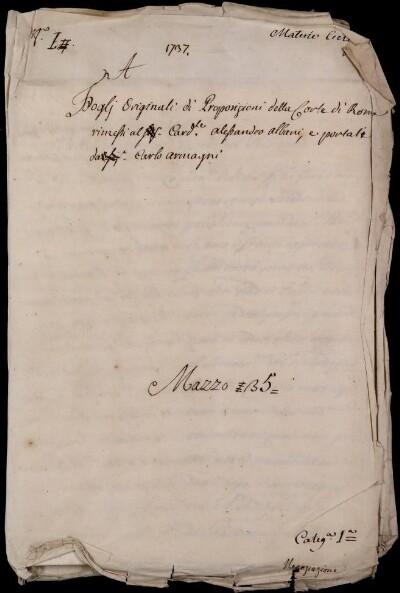 N.º I.
1737.
Materie
A
Foglj Originali di Proposizioni della Corte di Roma
rimessi al Sig.r Card.le Alessandro Albani, e portati
dal Carlo armagni
Mazzo 135
Categ.a I.ma
Negoziazione